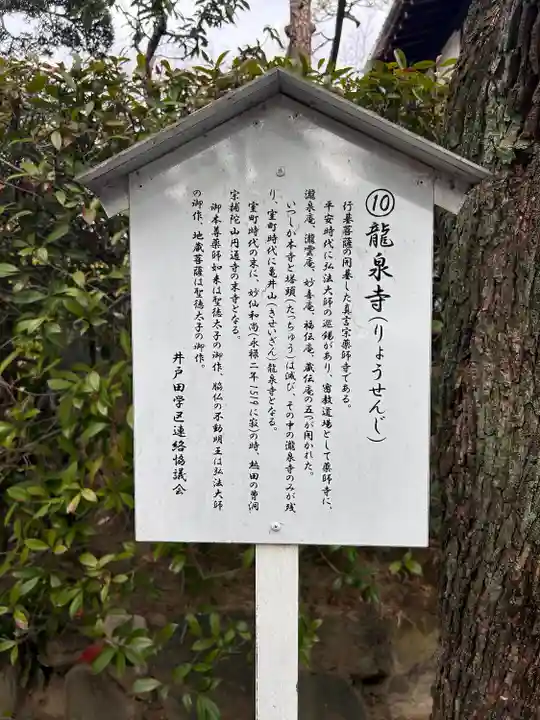 ⑩龍泉寺(りょうせんじ)
行基菩薩の開基した真言宗薬師寺である。
平安時代に弘法大師の巡錫があり、密教道場として薬師寺に、
瀧泉庵、瀧雲庵、妙喜庵、福伝庵、蔵伝庵の五つが開かれた。
いつしか本寺と塔頭(たっちゅう)は滅び、その中の瀧泉寺のみが残
り、室町時代に亀井山(きせいざん)龍泉寺となる。
室町時代の末に、妙仙和尚(永禄二年1519に寂)の時、熱田の曹洞
宗補陀山円通寺の末寺となる。
御本尊薬師如来は聖徳太子の御作、脇仏の不動明王は弘法大師
の御作、地蔵菩薩は聖徳太子の御作。
井戸田学区連絡協議会